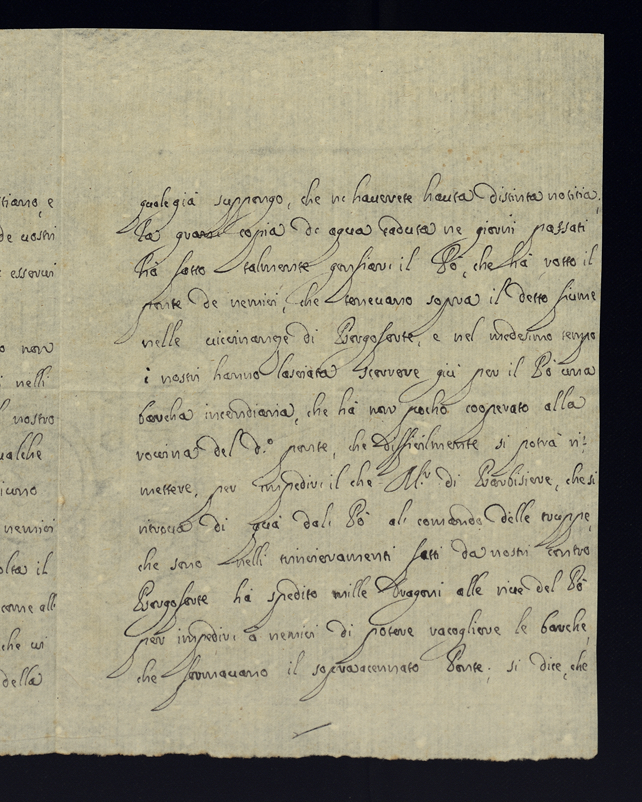 tiano, e
de vostri
esservi
o non
i nelli
l nostro
ualche
icono
nemici
olta il
come all
che vi
della
quale già suppongo, che ne haverete hauta distinta notitia,
la gran copia de aqua caduta ne giorni passati
hà fatto talmente gonfiare il Pò, che hà rotto il
ponte de nemici, che tenevano sopra il detto fiume
nelle vicinanze di Borgoforte, e nel medesimo tempo
i nostri hanno lasciata scorrere giù per il Pò una
barcha incendiaria, che hà non pocho cooperato alla
rovina del d.º ponte, che difficilmente si potrà ri:
mettere, per impedire il che M.r di Barbisiere, che si
ritrova di quà dal Pò al comando delle truppe,
che sono nelli trincieramenti fatti da nostri contro
Borgoforte hà spedito mille Dragoni alle rive del Pò
per impedire à nemici di potere racogliere le barche,
che formavano il sopraacennato Ponte; si dice, che